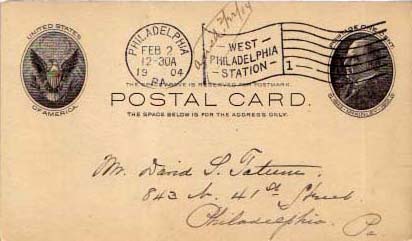 UNITED STATES
OF AMERICA
PHILADELPHIA
FEB 2
12-30A
1904
PA.
WEST
PHILADELPHIA
STATION
1
THE SPACE ABOVE IS RESERVED FOR POSTMARK.
POSTAL CARD.
THE SPACE BELOW IS FOR THE ADDRESS ONLY.
Mr. David S. Tatum
843 N. 41st Street
Philadelphia.
Pa